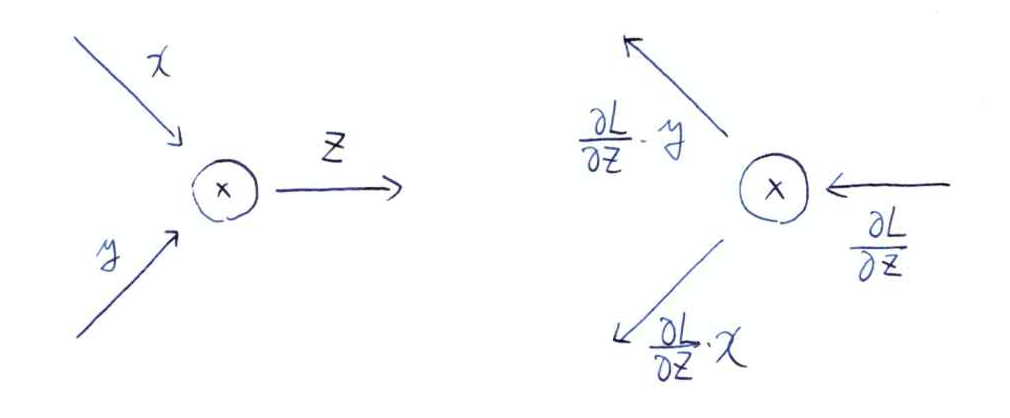 x
z
×
y
∂L/∂z · y
×
∂L/∂z
∂L/∂z · x